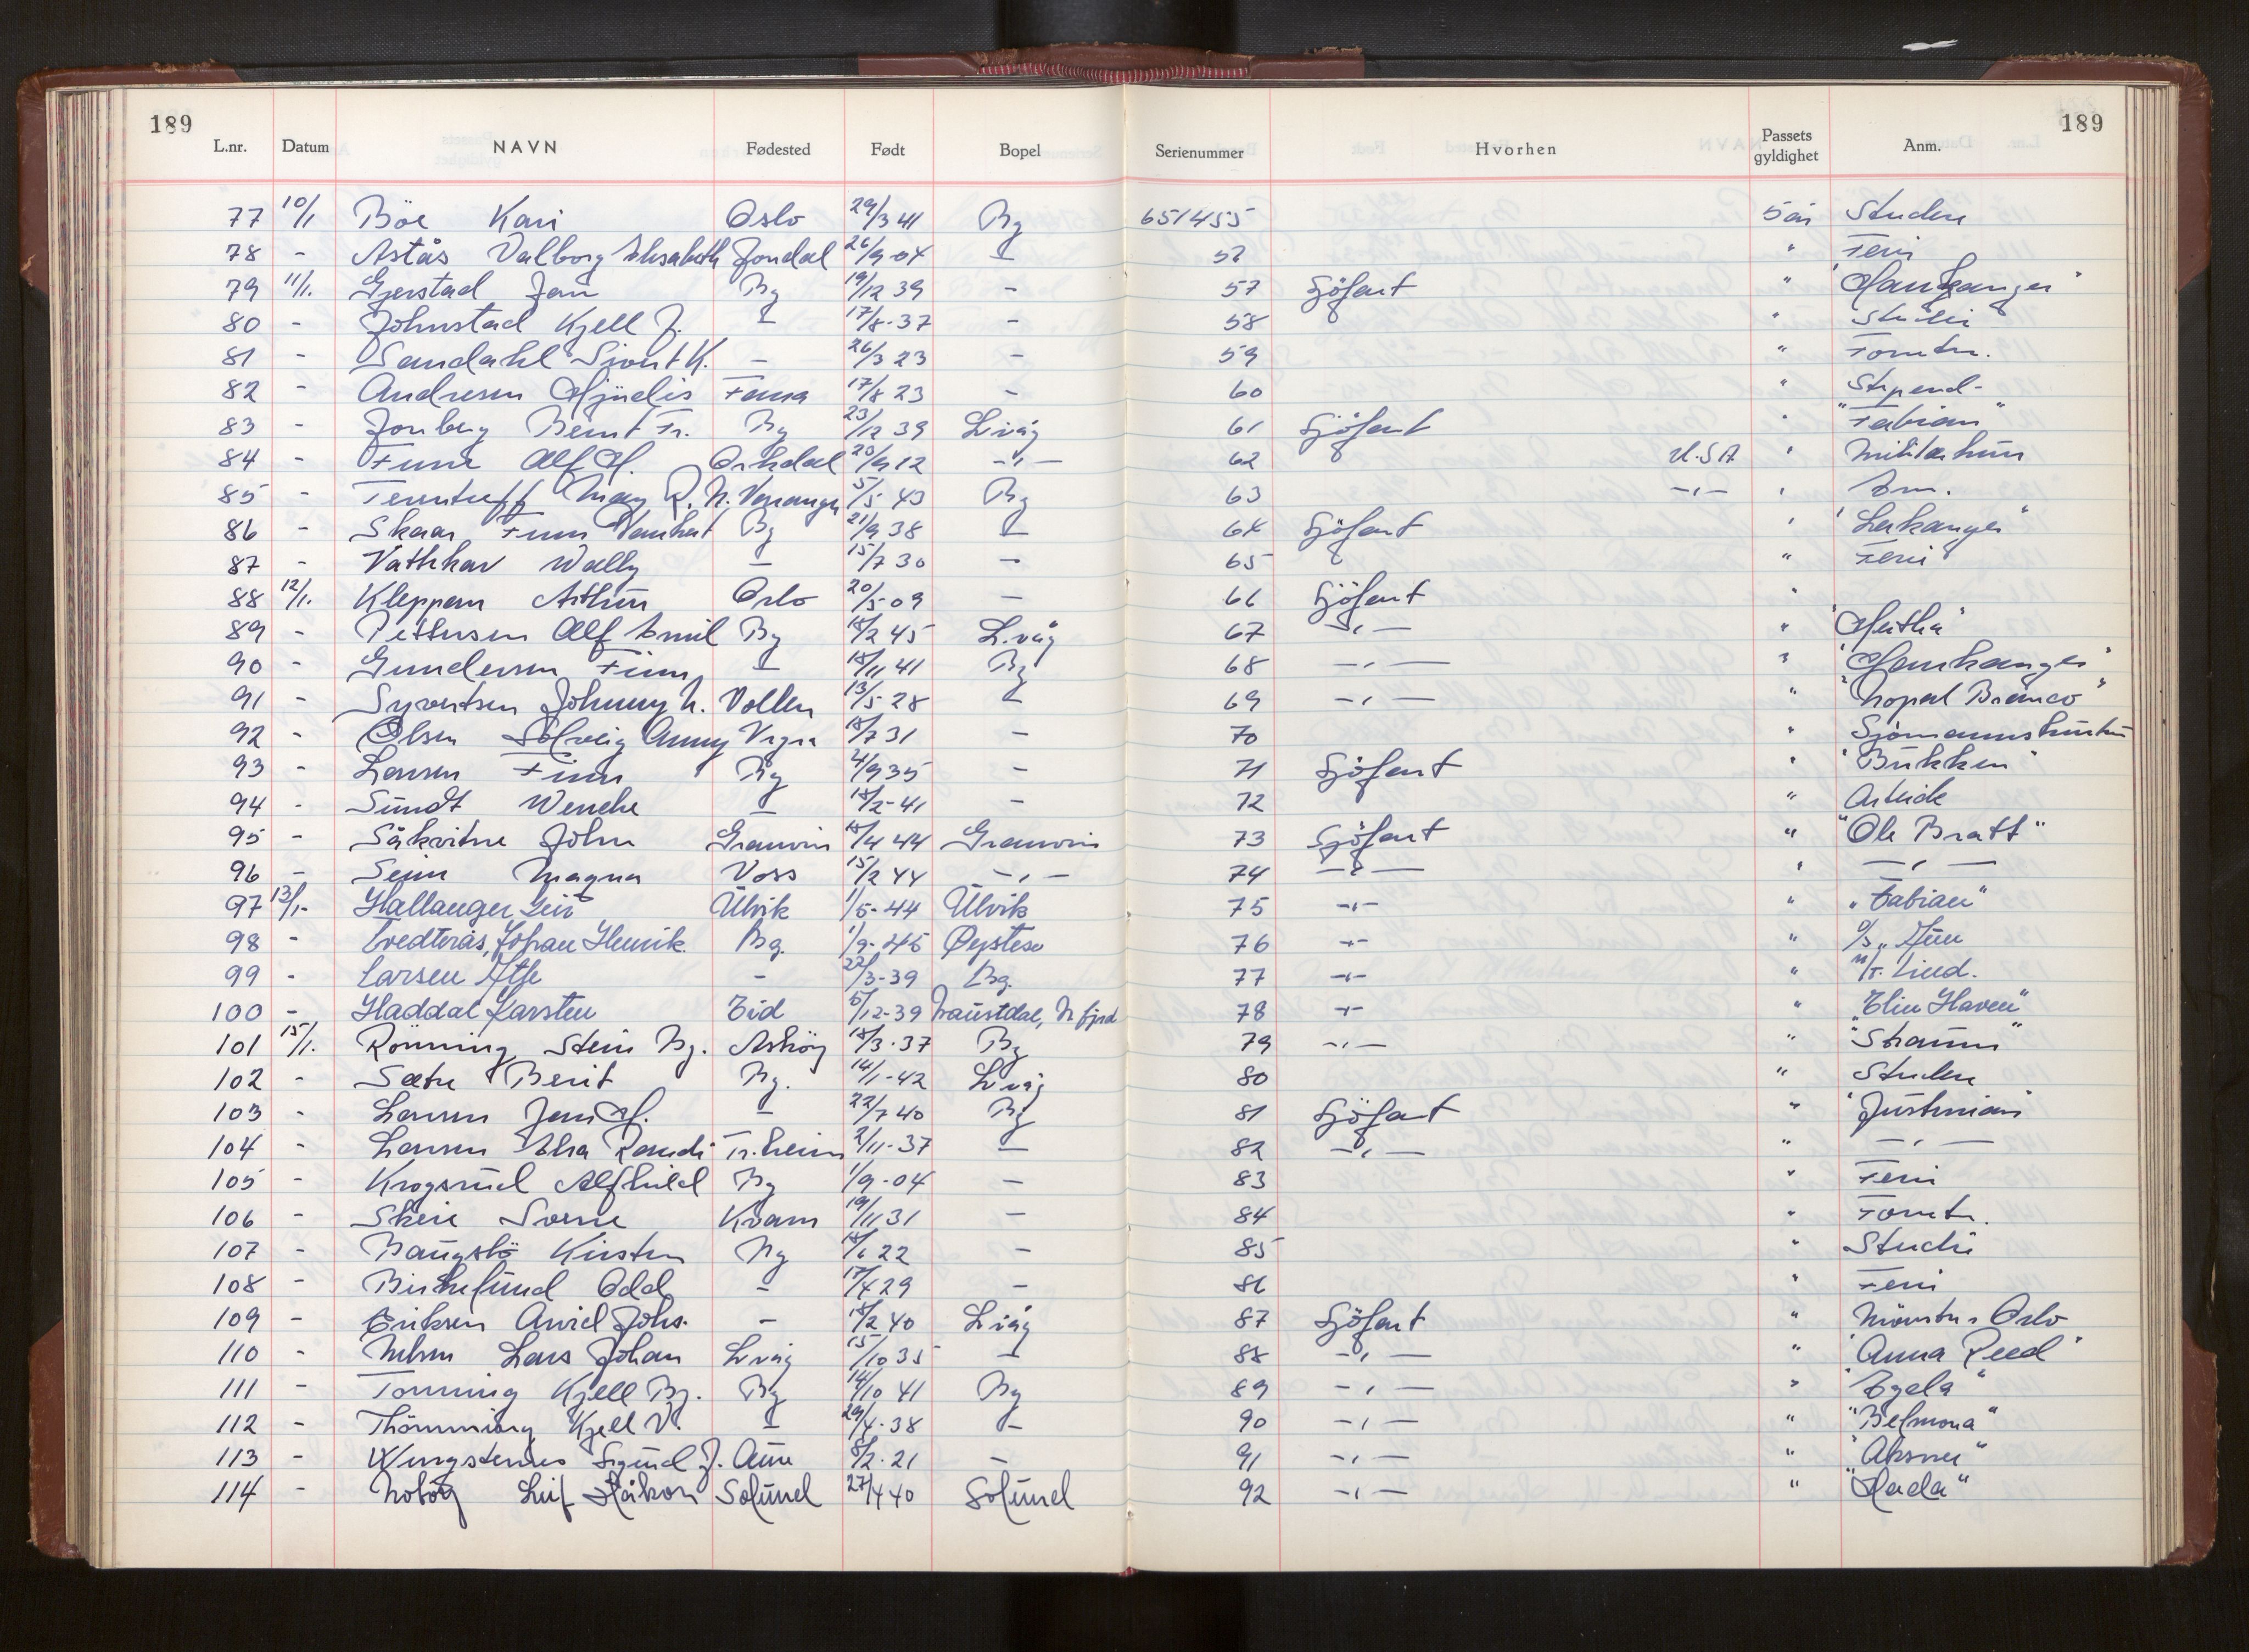 189 189
L.nr. Datum NAVN Fødested Født Bopel Serienummer Hvorhen Passets gyldighet Anm.
77 10/1 Böe Kari Oslo 29/3 41 Bg 651455 5 år Studier
78 - Astås Valborg Elisabeth Jondal 26/9-04 - 52 " Ferie
79 11/1. Gjerstad Jan Bg 19/12 39 - 57 Sjöfart " "Haukanger"
80 - Johnstad Kjell J. - 17/8-37 - 58 " Studie
81 - Sandahl Sivert K. - 26/3 23 - 59 " Forretn.
82 - Andresen Hjördis Fana 17/8 23 - 60 " Stipend-
83 - Jonberg Bernt Fr. Bg 23/12 39 L.våg 61 Sjöfart " "Fabian"
84 - Alf H. Orkdal 20/9 12 -"- 62 U.S.A "
85 - May R. N. Varanger 5/5 43 Bg 63 -"- "
86 - Skaar Finn Bg 21/9 38 - 64 Sjöfart " "Leikanger"
87 - Vathkar Wally - 15/7 30 - 65 " Ferie
88 12/1. Kleppen Arthur Oslo 20/5-09 - 66 Sjöfart "
89 - Pettersen Alf Emil Bg 18/2 45 L.våg 67 -"- " "Hertha"
90 - Gundersen Finn - 18/11 41 Bg 68 -"- " "Haukanger"
91 - Syvertsen Johnny N. Vollen 13/5 28 - 69 -"- " "Nopal Branco"
92 - Olsen Solveig Anny Vigra 18/7 31 - 70 "
93 - Larsen Finn Bg 4/9 35 - 71 Sjöfart " "Bukken"
94 - Sundt Wenche - 18/2-41 - 72 " Arbeide
95 - Såkvitne John Granvin 18/4 44 Granvin 73 Sjöfart " "Ole Bratt"
96 - Seim Magna Voss 15/2 44 -"- 74 -"- " -"-
97 13/1- Hallanger Leiv Ulvik 1/5-44 Ulvik 75 -"- " "Fabian"
98 - Tvedterås, Johan Henrik Bg. 1/9-46 Øystese 76 -"- "
99 - Larsen Atle - 22/3-39 Bg. 77 -"- " M/T. Lind.
100 - Haddal Karsten Eid 5/12-39 Naustdal, N.fjord 78 -"- " "Elin Haven"
101 15/1. Rönning Stein Bj. Asköy 18/3-37 Bg 79 -"- " "Straum"
102 - Sætre Berit Bg. 14/1-42 L.våg 80 " Studier
103 - Larsen Jan H. - 22/7 40 Bg 81 Sjöfart " "Justinian"
104 - Larsen Elsa Randi Tr.heim 2/11-37 - 82 -"- " -"-
105 - Krogsrud Alfhild Bg 1/9-04 - 83 " Ferie
106 - Skeie Sverre Kvam 19/11 31 - 84 " Forretn.
107 - Baugstö Kirsten Bg 18/6 22 - 85 " Studie
108 - Birkelund Odd - 17/4 29 - 86 " Ferie
109 - Eriksen Arvid Johs. - 18/2 40 L.våg 87 Sjöfart " Mönstre i Oslo
110 - Nilsen Lars Johan L.våg 15/10 35 - 88 -"- " "Anna Reed"
111 - Tonning Kjell Bj. Bg 14/10 41 Bg 89 -"- " "Egda"
112 - Kjell V. - 29/4-38 - 90 -"- " "Belmona"
113 - Sigurd J. Aure 8/2-21 - 91 -"- "
114 - Leif Håkon Solund 27/4 40 Solund 92 -"- " "Hada"